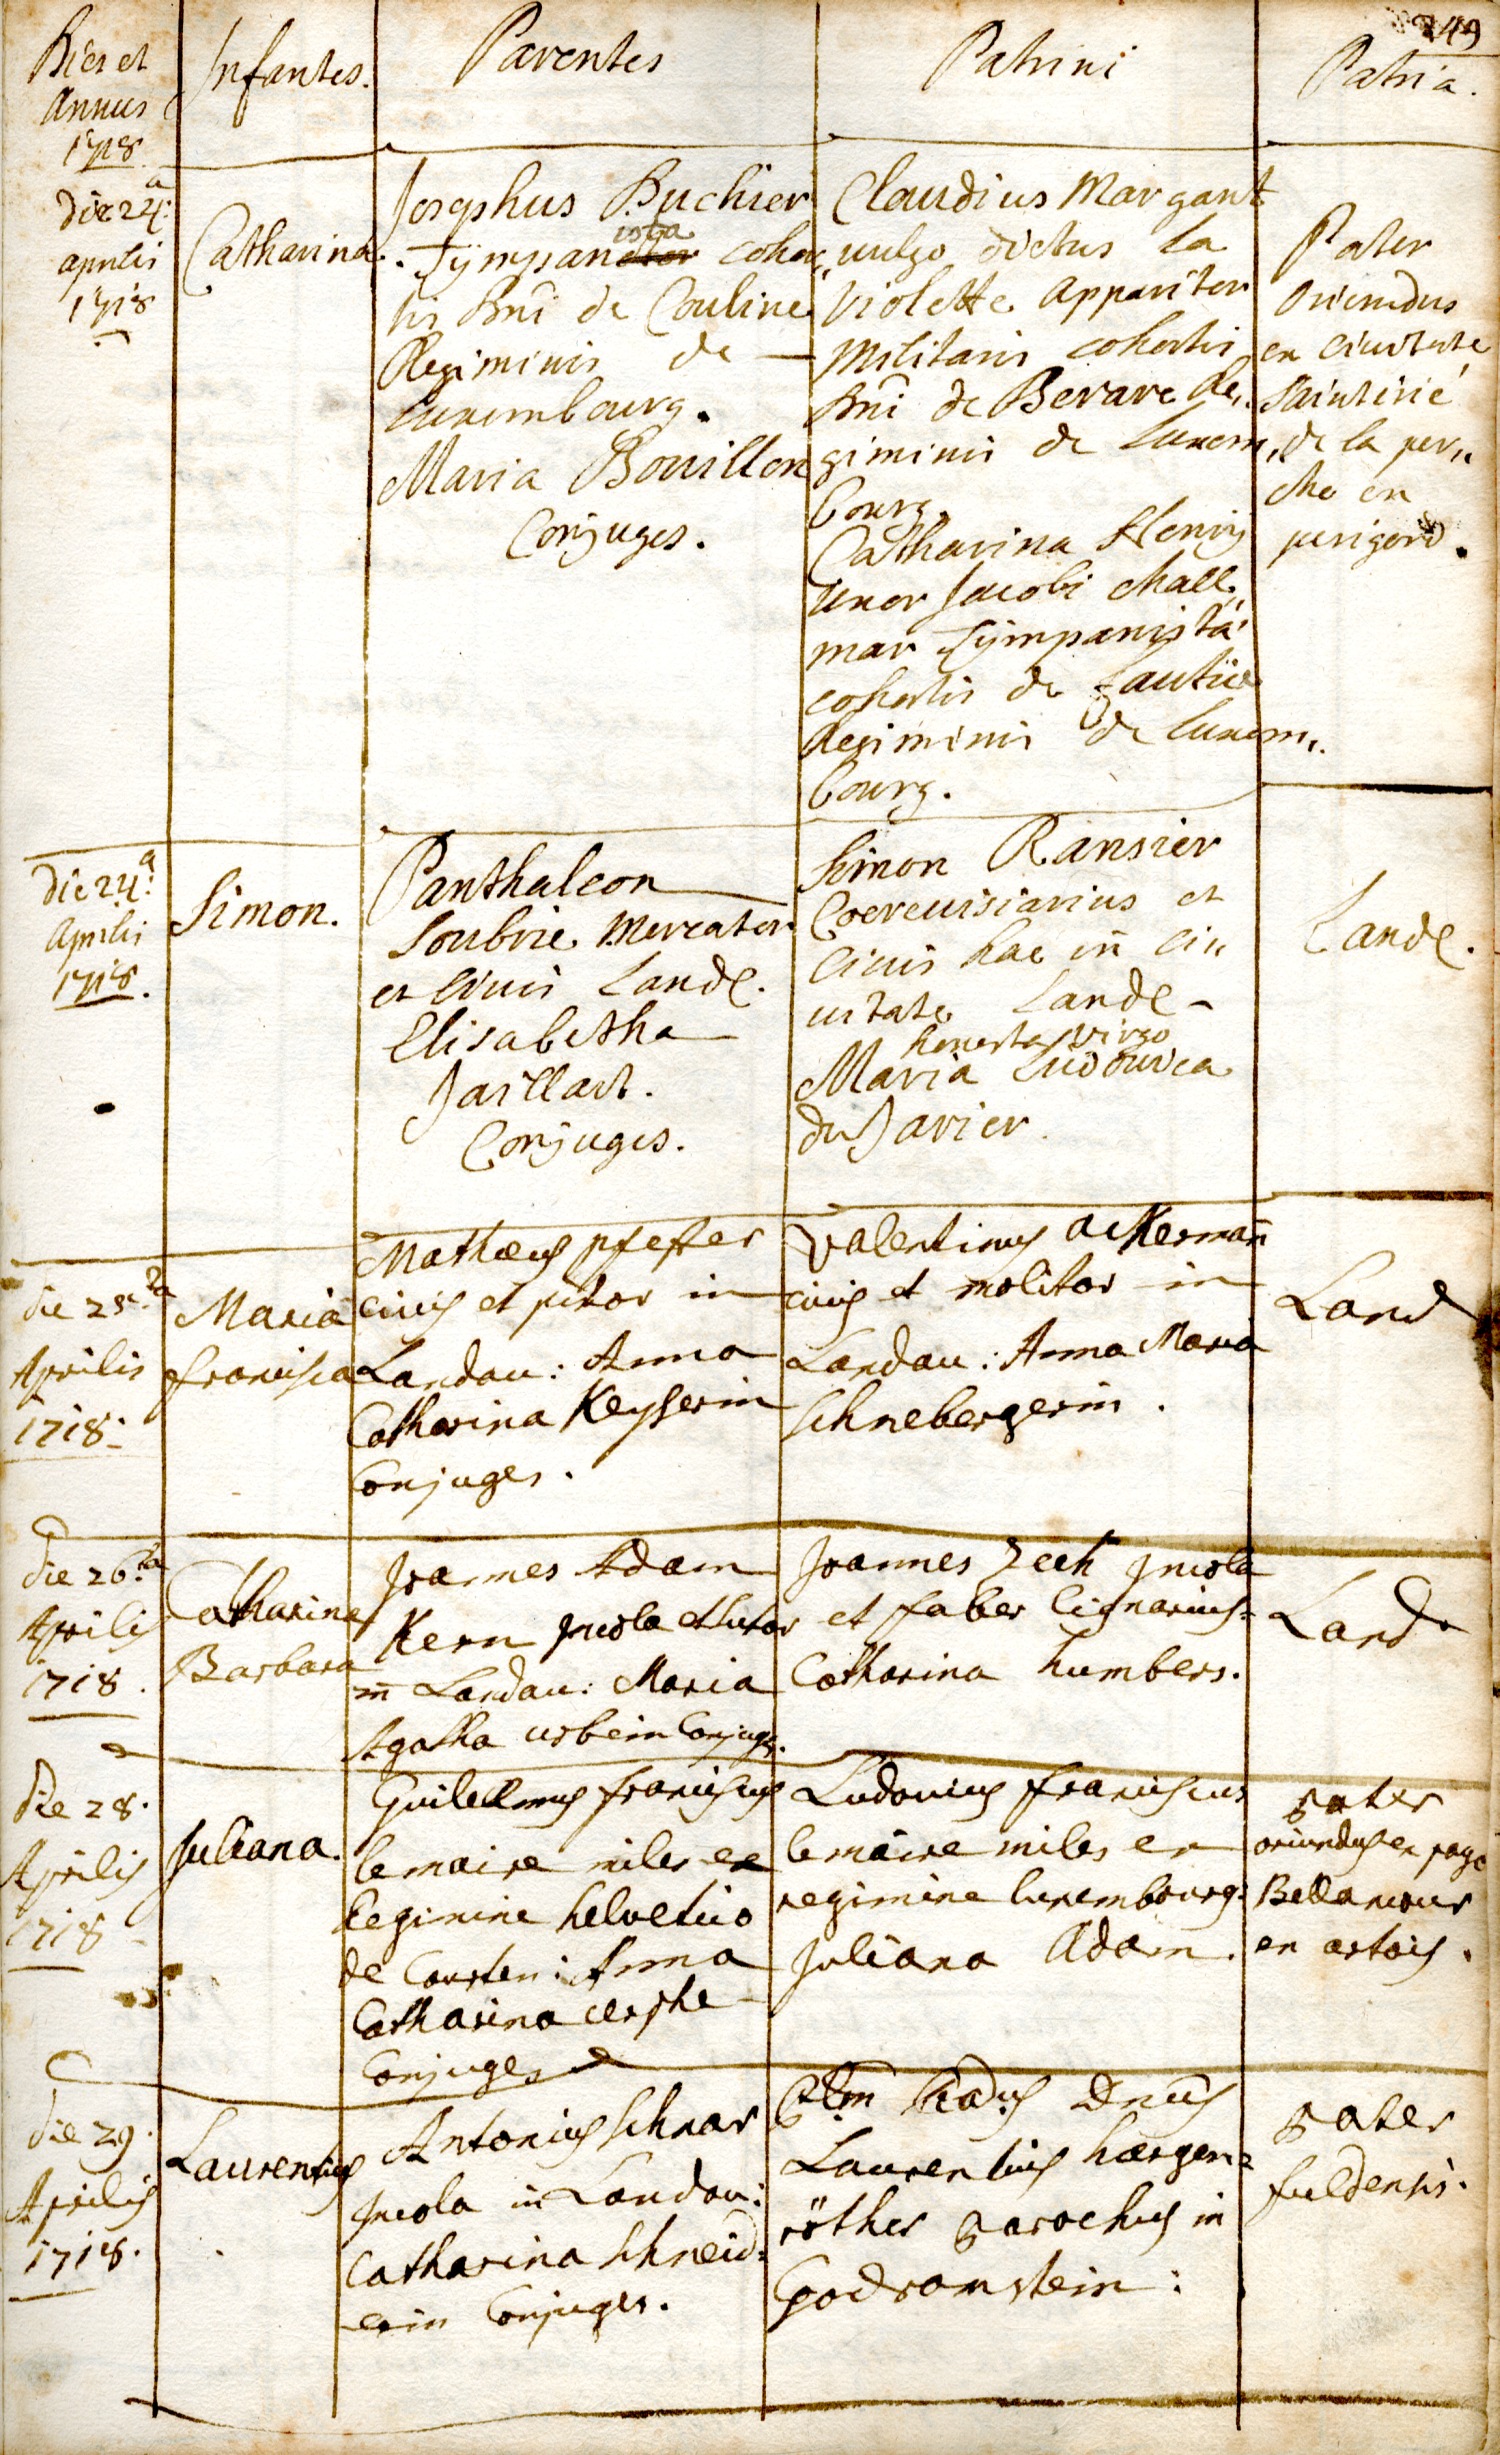 249
Dies et
Annus
1718
Infantes.
Parentes
Patrini
Patria.
Die 24.a
aprilis
1718
Catharina.
Josephus Buchier
Tÿmpanista cohor„
tis Dni de Couline
Regiminis de —
Luxembourg.
Maria Bouillon
Conjuges.
Claudius Margant
vulgo dictus La
Violette Apparitor
Militaris cohortis
Dni de Berare Re„
giminis de Luxem„
bourg.
Catharina Henry
Uxor Jacobi Mall„
mar Tÿmpanista
cohortis de
Regiminis de Luxem„
bourg.
Pater
Oriundus
ex Civitate
de la per„
che en
perigord.
Die 24.a
Aprilis
1718.
Simon.
Panthaleon
Soubrie Mercator
et Civis Landę.
Elisabetha
Jaillart.
Conjuges.
Simon Ransier
Coerevisiarius et
Civis hac in Ci„
vitate Landę -
honesta virgo
Maria Ludovica
du Javier.
Landę.
die 25.ta
Aprilis
1718.
Maria
francisca
Mathæus pfeffer
civis et pistor in
Landau: Anna
Catharina Keyserin
Conjuges.
Valentinus Ackerman̄
civis et molitor in
Landau: Anna Maria
Schnebergerin.
Land
die 26.ta
Aprilis
1718.
Catharina
Barbara
Joannes Adam
Kern Incola et sutor
in Landau: Maria
Agatha urbein Conjuges.
Joannes Zech Incola
et faber lignarius=
Catharina humbers.
Land
Die 28.
Aprilis
1718
Juliana.
Guilelmus franciscus
lemaire miles ex
Regimine helvetico
de Coursten: Anna
Catharina cerphe
Conjuges
Ludovicus franciscus
lemaire miles ex
regimine luxembourg:
Juliana Adam.
pater
oriundus ex pago
Bellancour
en artois.
die 29.
Aprilis
1718.
Laurentius
Antonius Schnar
Incola in Landau:
Catharina Schneid=
erin Conjuges.
Dnus
Laurentius hærgen=
röther parochus in
Godramstein:
pater
fuldensis.